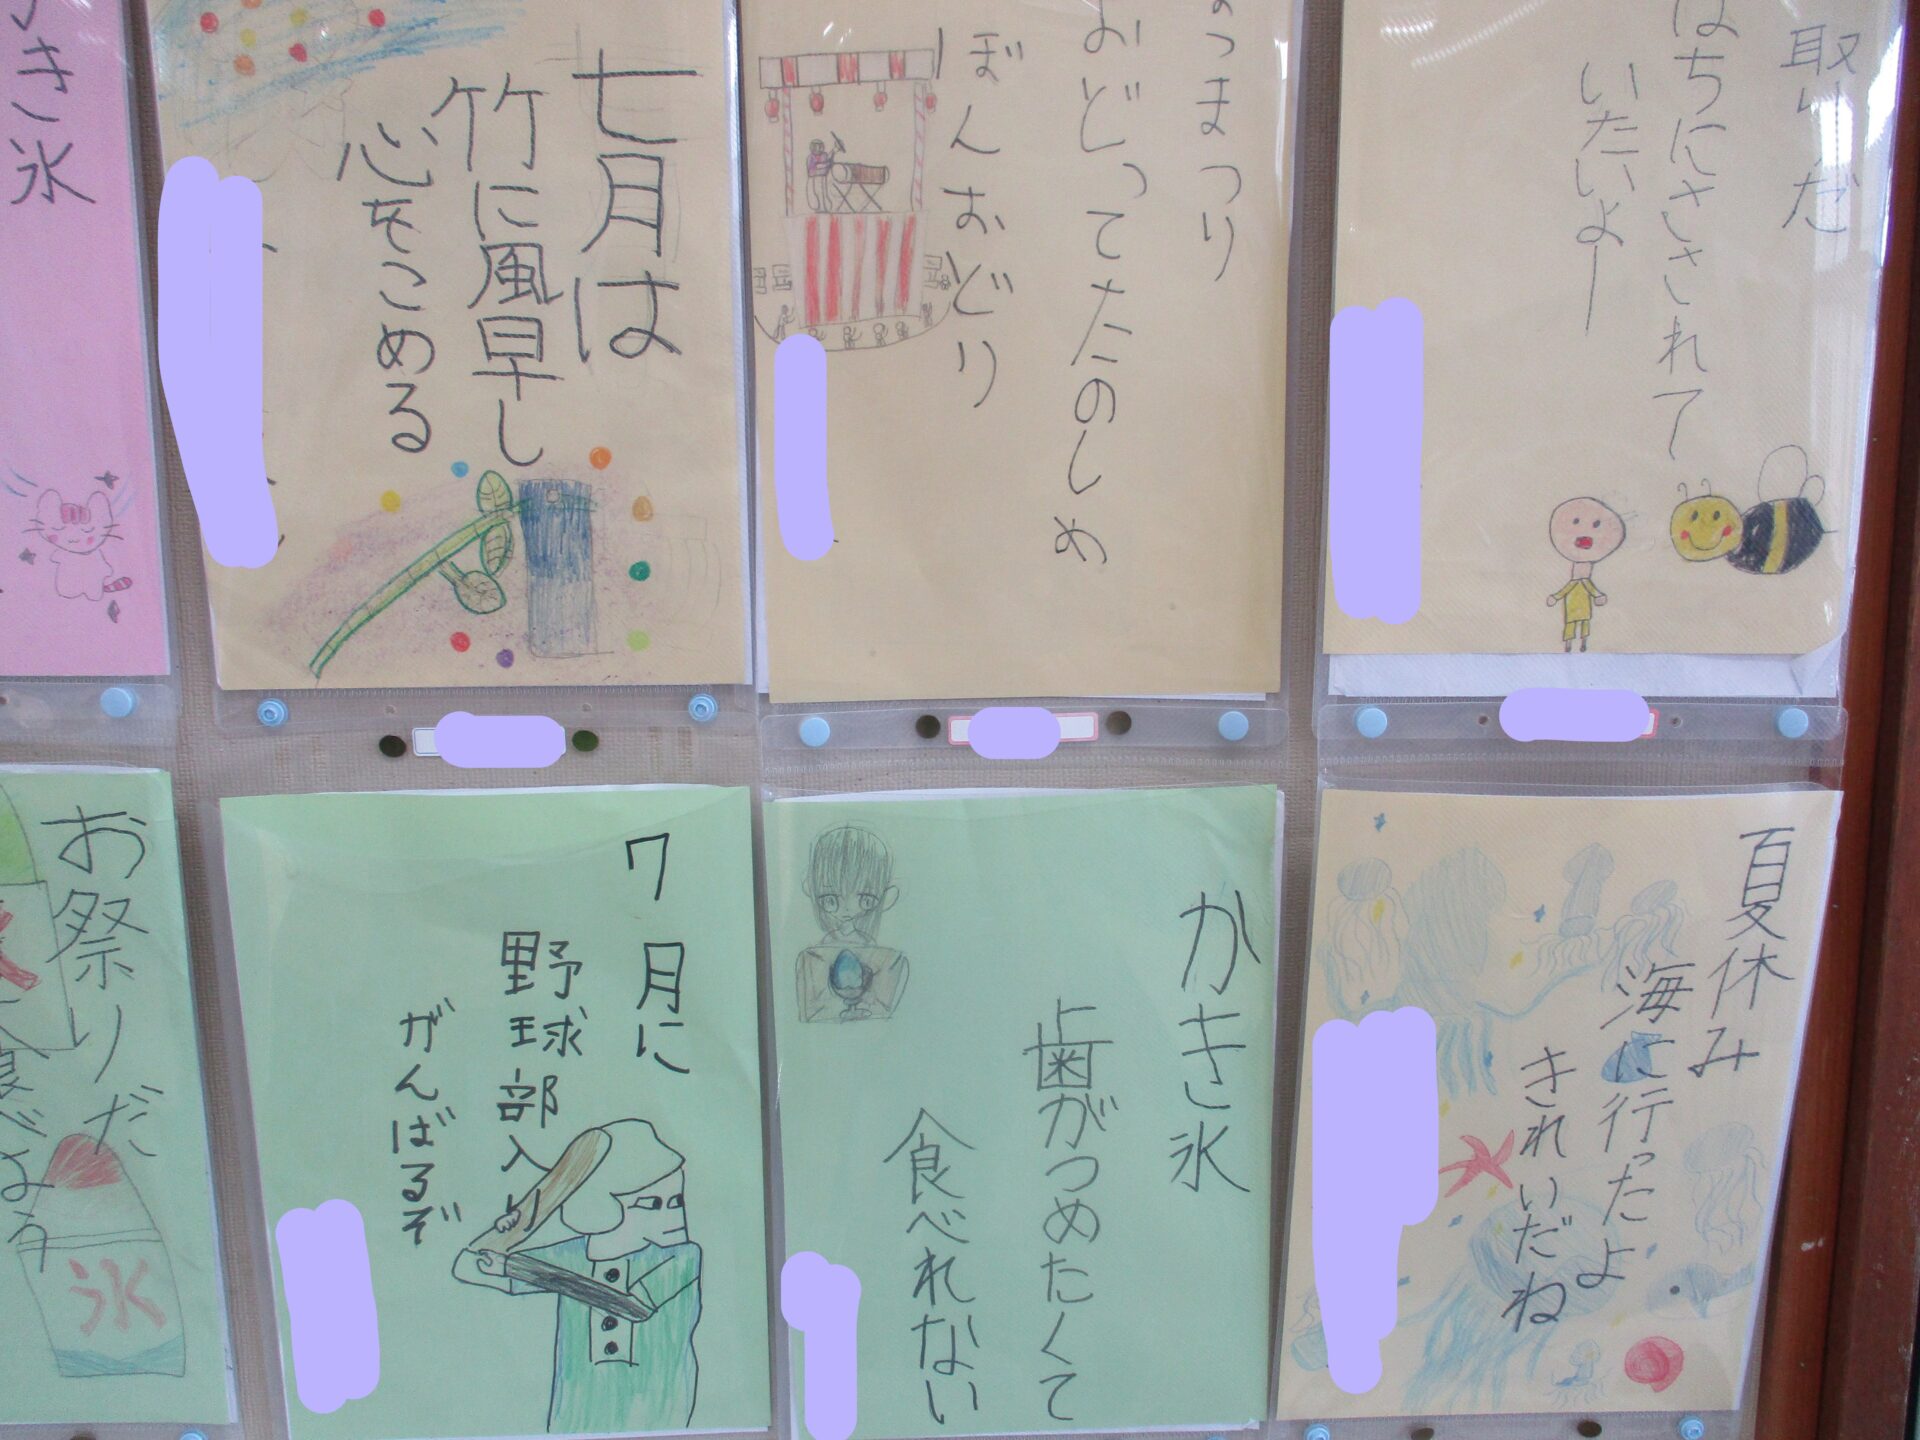 取りだ
はちにさされて
いたいよー
つまつり
おどってたのしめ
ぼんおどり
七月は
竹に風早し
心をこめる
き氷
夏休み
海に行ったよ
きれいだね
かき氷
歯がつめたくて
食べれない
7月に
野球部入り
がんばるぞ
お祭りだ
食べよう
氷